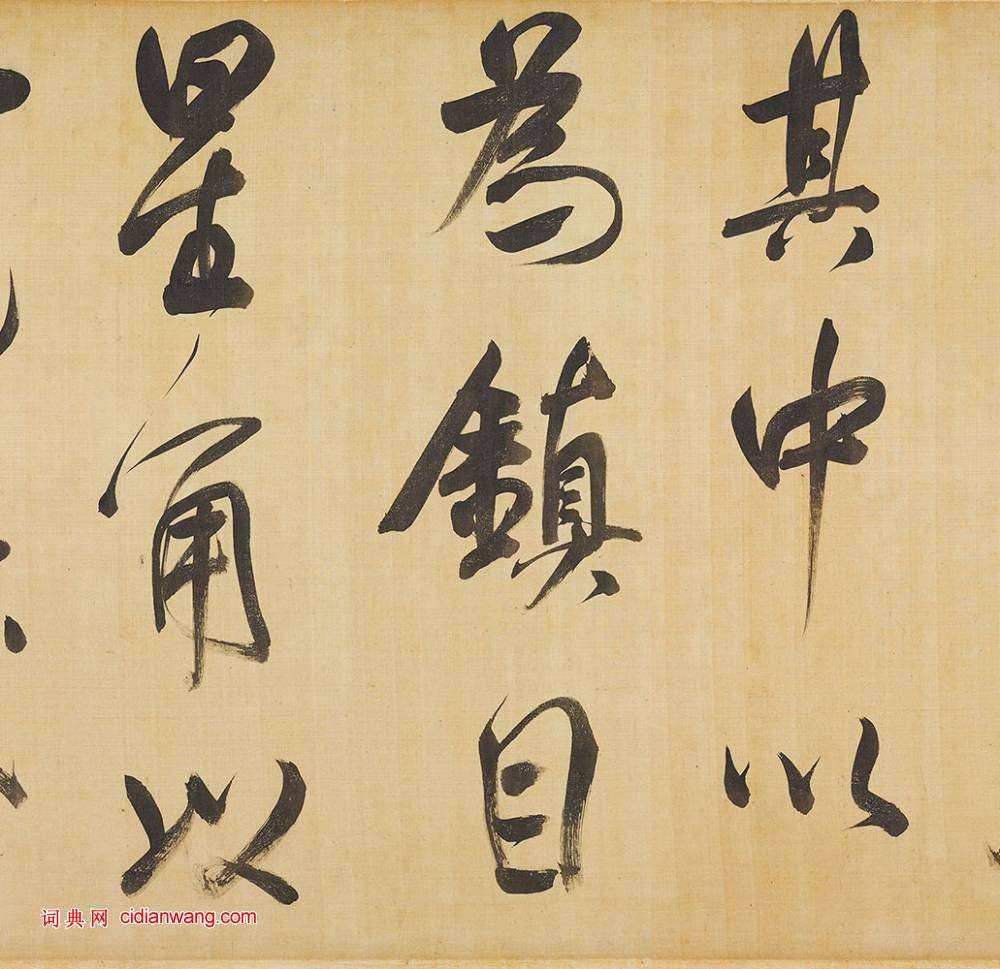 其中以
為鎮目
星角以
词典网 cidianwang.com